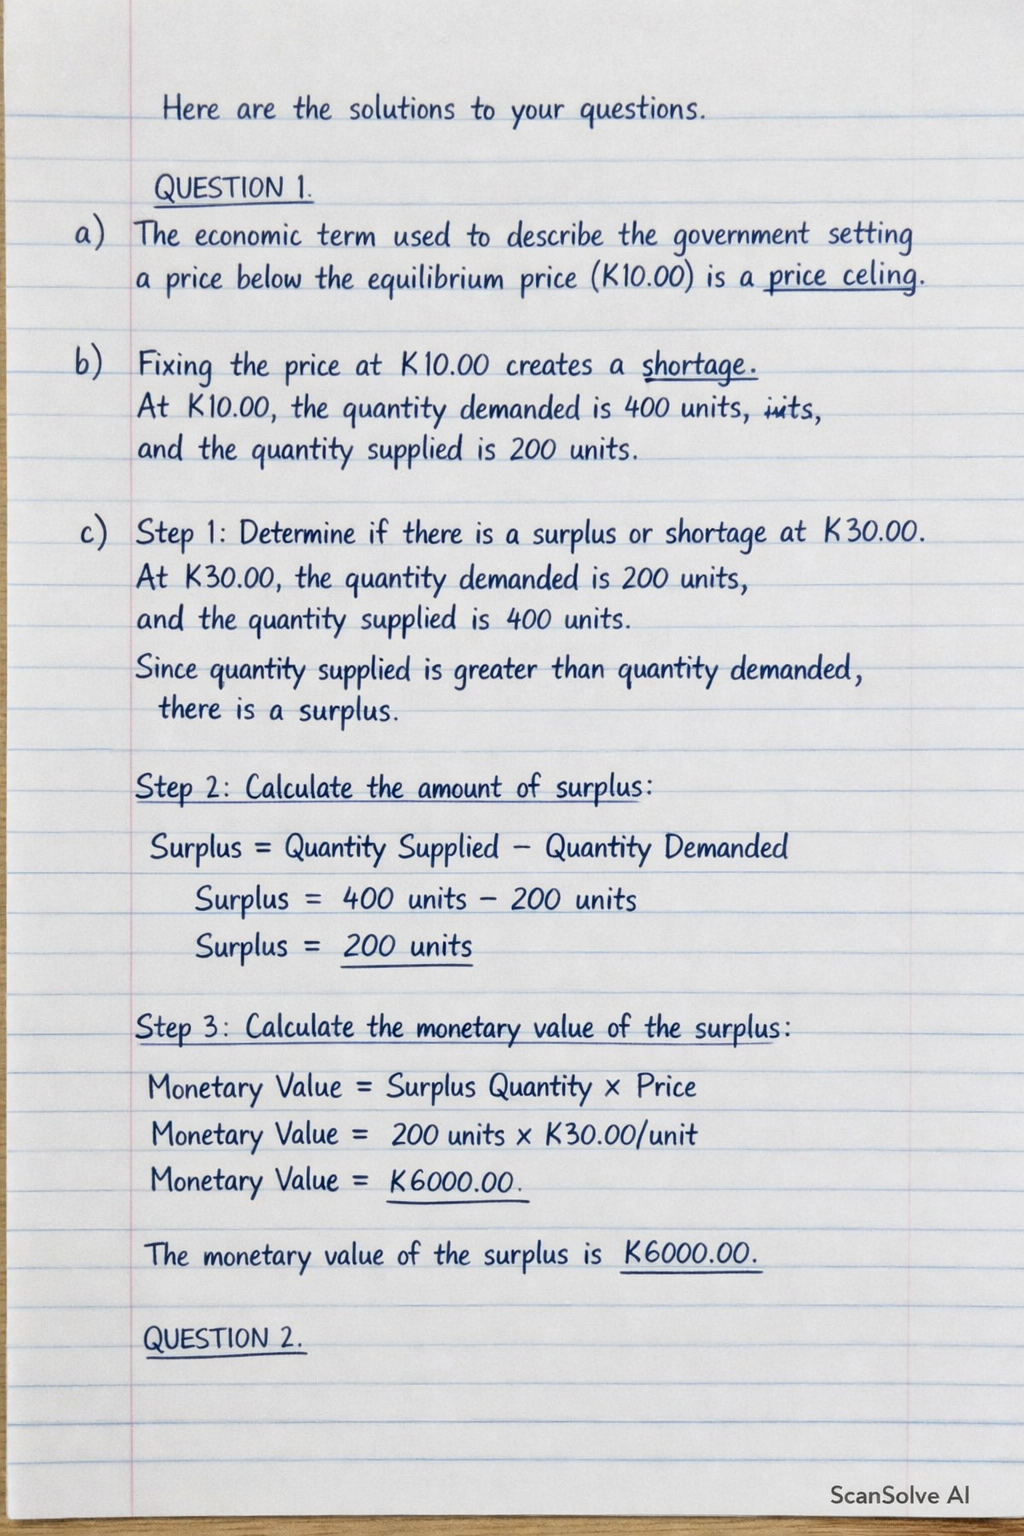 Here are the solutions to your questions.
QUESTION 1.
a) The economic term used to describe the government setting
a price below the equilibrium price (K10.00) is a price celing.
b) Fixing the price at K10.00 creates a shortage.
At K10.00, the quantity demanded is 400 units,
and the quantity supplied is 200 units.
c) Step 1: Determine if there is a surplus or shortage at K30.00.
At K30.00, the quantity demanded is 200 units,
and the quantity supplied is 400 units.
Since quantity supplied is greater than quantity demanded,
there is a surplus.
Step 2: Calculate the amount of surplus:
Surplus = Quantity Supplied – Quantity Demanded
Surplus = 400 units – 200 units
Surplus = 200 units
Step 3: Calculate the monetary value of the surplus:
Monetary Value = Surplus Quantity × Price
Monetary Value = 200 units × K30.00/unit
Monetary Value = K6000.00.
The monetary value of the surplus is K6000.00.
QUESTION 2.
ScanSolve AI